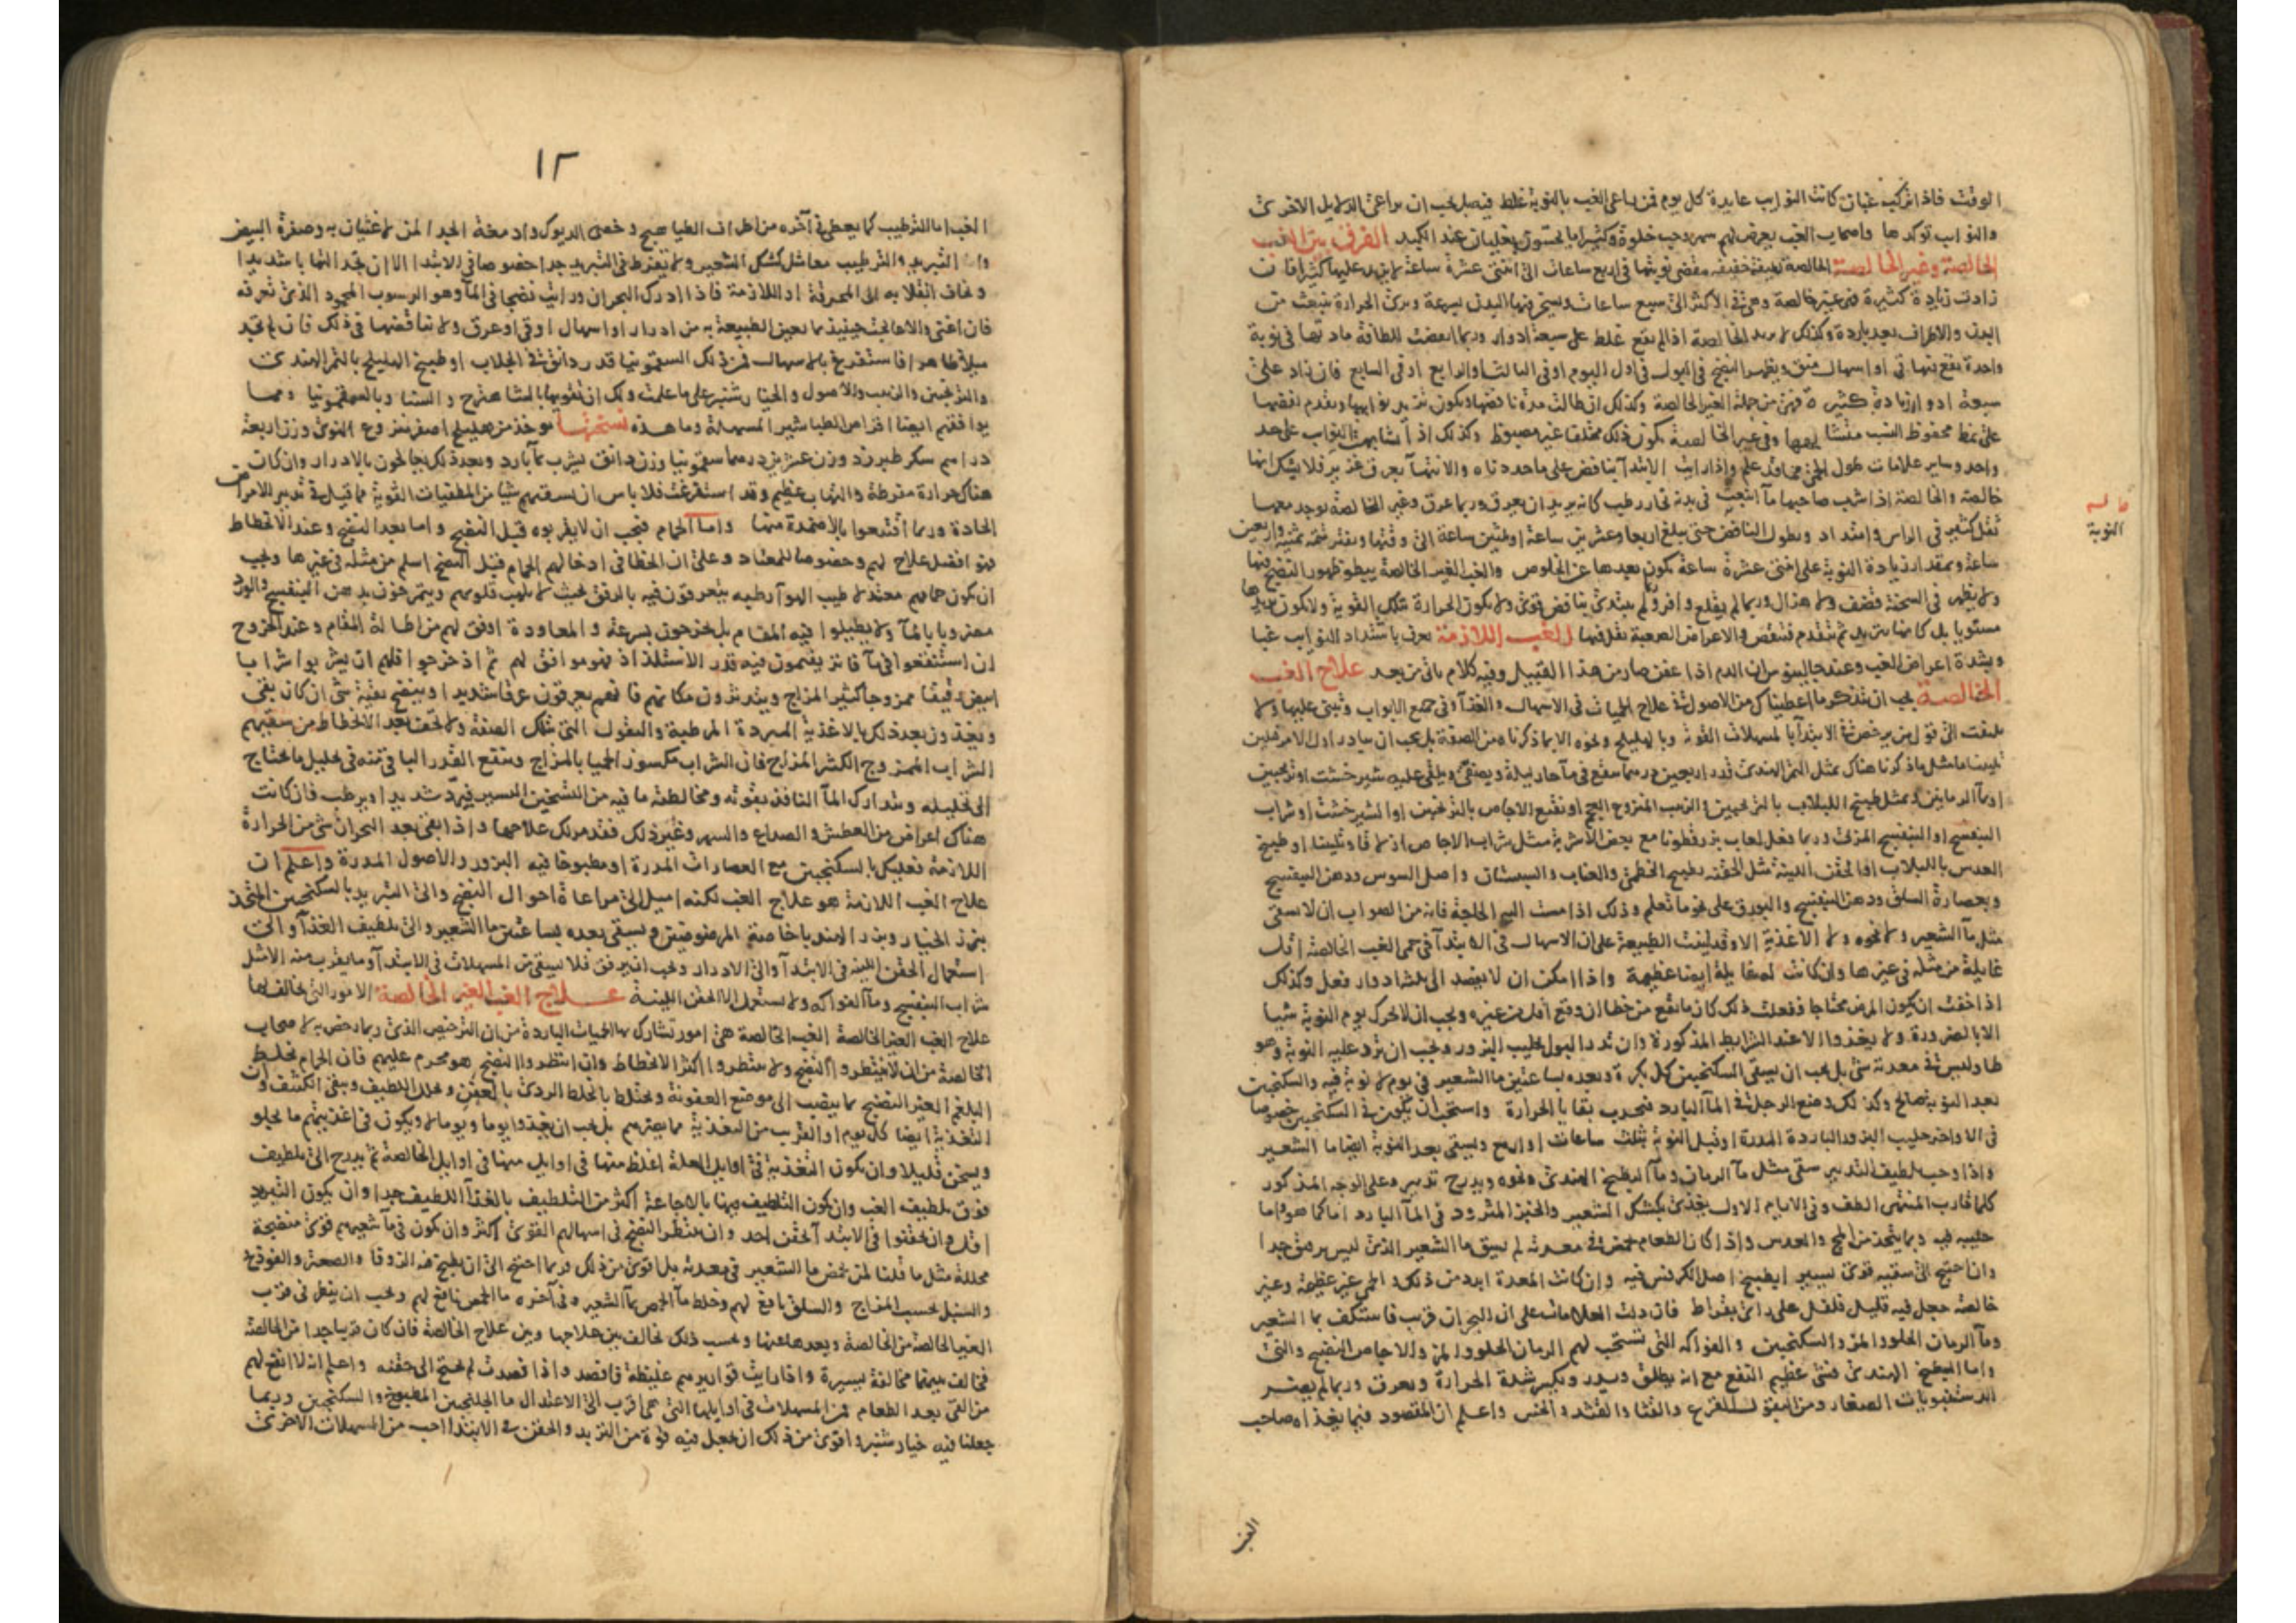 الوقت فاذا تركب غبان كانت النوايب عايدة كل يوم فمن راعى الغب بالنوبة غلط فيه بل يجب ان يراعى الدلايل الاخرى
والنوايب توكدها واصحاب الغب يعرض لهم سهر وحب خلوة وكثيرا ما يحسون بغليان عند الكبد الفرق بين الغب
الخالصة وغير الخالصة الخالصة لطيفة خفيفة مقضى نوبتها فى اربع ساعات الى اثنتى عشرة ساعة لا يزيد عليها كثيرا فان
زادت زيادة كثيرة فهى غير خالصة وهى فى الاكثر الى سبع ساعات ويسخن فيها البدن بسرعة وترى الحرارة تنبعث من
البدن والاطراف بعد باردة وكذلك لا يزيد الخالصة اذا لم يقع غلط على سبعة ادوار وربما انقضت للطافة مادتها فى نوبة
واحدة يقع فيها قى او اسهال منق ويظهر النضج فى البول فى اول اليوم او فى الثالث او الرابع او فى السابع فان زاد على
سبعة ادوار زيادة كثيرة فهى من جملة الغير الخالصة وكذلك ان طالت مدة نافضها ويكون تزيد نوايبها وتقدم نقصها
على نمط محفوظ النسب متشابها وفى غير الخالصة يكون ذلك مختلفا غير مضبوط وكذلك اذا تشابهت النوايب على حد
واحد وساير علامات طول الحمى مما قد علم واذا رايت الابتدا بنافض على ما حددناه والانتها بعرق غزير فلا يشك انها
خالصة والخالصة اذا شرب صاحبها ما انبعث فى بدنه بخار رطب كانه يريد ان يعرق وربما عرق وغير الخالصة يوجد معها
النوبة
ثقل كثير فى الراس وامتداد ويطول النافض حتى يبلغ اربعا وعشرين ساعة او ثلثين ساعة الى وقتها ويفتر تتمة ثمنية واربعين
ساعة وبمقدار زيادة النوبة على اثنتى عشرة ساعة يكون بعدها عن الخلوص والغب الغير الخالصة يبطو ظهور النضج فيها
ولا يظهر فى السحنة قضف ولا هزال وربما لم يقلع وافر ولم يبتدى بنافض قوى ولا يكون الحرارة بتلك القوية ولا يكون تزيدها
مستويا بل كانها تتزيد ثم تتقدم فتنقص والاعراض الصعبة تقل فيها الغب اللازمة تعرف باشتداد النوايب غبا
وبشدة اعراض الغب وعند جالينوس ان الدم اذا عفن صار من هذا القبيل وفيه كلام ياتى من بعد علاج الغب
الخالصة يجب ان تتذكر ما اعطيناك من الاصول فى علاج الحميات فى الاسهال والغذا وفى جميع الابواب وتبنى عليها ولا
تلتفت الى قول من يرخص فى الابتدا بالمسهلات القوية وبالهليلج ونحوه الا بما ذكرناه من الصفة بل يجب ان يبادر اول الامر فيلين
تليينا ما مثل ما ذكرنا هناك بمثل التمر الهندى قدر اربعين درهما ينقع فى ما حار ليلة ويصفى ويلقى عليه شيرخشت او ترنجبين
او بما الرمانين وبمثل طبيخ اللبلاب بالترنجبين والزبيب المنزوع العجم او نقيع الاجاص بالترنجبين او الشيرخشت او شراب
البنفسج او البنفسج المربى وربما فعل لعاب بزرقطونا مع بعض الاشربة مثل شراب الاجاص ازلاقا وتليينا او طبيخ
العدس باللبلاب او الحقن اللينة مثل الحقنة بطبيخ الخطمى والعناب والسبستان واصل السوس ودهن البنفسج
وبعصارة السلق ودهن البنفسج والبورق على نحو ما تعلم وذلك اذا مست اليه الحاجة فانه من الصواب ان لا يسقى
مثل ما الشعير ولا نحوه ولا الاغذية الا وقد لينت الطبيعة على ان الاسهال فى الابتدا فى حمى الغب الخالصة اقل
غايلة من مثله فى غيرها وان كانت له غايلة ايضا عظيمة واذا امكن ان لا يفصد الى ثلثة ادوار فعل وكذلك
اذا خفت ان يكون المرض محتاجا ففعلت ذلك كان ما يقع من خطا ان وقع اقل من غيره ويجب ان لا تحرك يوم النوبة شيا
الا بالضرورة ولا يغذوا الا عند الشرايط المذكورة وان تدر البول بحليب البزور ويجب ان ترد عليه النوبة وهو
طاو ليس فى معدته شى بل يجب ان يسقى السكنجبين كل بكرة وبعده بساعتين ما الشعير فى يوم لا نوبة فيه والسكنجبين
بعد النوبة صالح وكذلك وضع الرجل فى الما البارد فتجذب بقايا الحرارة واستحب ان يكون فى السكنجبين خصوصا
فى الاواخر حليب البزور الباردة المدرة او قبل النوبة بثلث ساعات او اربع ويسقى بعد النوبة ايضا ما الشعير
واذا وجب تلطيف التدبير سقى مثل ما الرمان وما البطيخ الهندى ونحوه ويدرج تدبيره على الوجه المذكور
كلما قارب المنتهى الطف وفى الايام الاول يغذى بكشك الشعير والخبز المثرود فى الما البارد اما كما هو واما
حليبه به وبما يتخذ من المج والعدس واذا كان الطعام يحمض فى معدته لم يسق ما الشعير الذى ليس برقيق جدا
وان احتيج الى سقيه قوى بيسير ان يطبخ اصل الكرفس فيه وان كانت المعدة ابرد من ذلك والحمى غير عظيمة وغير
خالصة جعل فيه قليل فلفل على راى بقراط فان دلت العلامات على ان البحران قرب فاستكف بما الشعير
وما الرمان الحلو والمز والسكنجبين والفواكه التى تستحب لهم الرمان الحلو والمز والاجاص النضيج والنى
واما البطيخ الهندى فشى عظيم النفع مع انه يطلق ويدر ويكسر شدة الحرارة ويعرق وربما لم يضر
الدستنبويات الصغار ومن البقول القرع والقثا والقثد والخس واعلم ان المقصود فيما يغذاه صاحب
الغب
١٢
الغب اما الترطيب كما يعطى فى آخره من اطراف الطياهيج وخصى الديوك وادمغة الجدا لمن لا غثيان به وصفرة البيض
واما التبريد والترطيب معا مثل كشك الشعير ولا تفرط فى التبريد جدا خصوصا فى الابتدا الا ان تجد التهابا شديدا
وتخاف انقلابه الى المحرقة او اللازمة فاذا ادرك البحران ورايت نضجا فى الما وهو الرسوب المحمود الذى تعرفه
فان اغنى والا عالجت حينيذ بما يعين الطبيعة به من ادرار او اسهال او قى او عرق ولا تناقضها فى ذلك فان لم تجد
ميلا ظاهرا فاستفرغ بالاسهال فمن ذلك السقمونيا قدر دانق فى الجلاب او طبيخ الهليلج بالتمر الهندى
والترنجبين والزبيب والاصول والخيارشنبر على ما علمت ولك ان تقويها بالشاهترج والسنا وبالسقمونيا ومما
يوافقهم ايضا اقراص الطباشير المسهلة وما هذه نسختها يوخذ من هليلج اصفر منزوع النوى وزن اربعة
دراهم سكر طبرزد وزن عشرين درهما سقمونيا وزن دانق يشرب بما بارد وبعد ذلك يعالجون بالادرار وان كان
هناك حرارة مفرطة والتهاب عظيم وقد استفرغت فلا باس ان تسقيهم شيا من المطفيات القوية مما قيل فى تدبير الامراض
الحادة وربما اقتنعوا بالاضمدة منها واما الحمام فيجب ان لا يقربوه قبل النضج واما بعد النضج وعند الانحطاط
فهو افضل علاج لهم وخصوصا للمعتاد وعلى ان الخطا فى ادخالهم الحمام قبل النضج اسلم من مثله فى غيرها ويجب
ان يكون حمامهم معتدلا طيب الهوا رطبه يتعرقون فيه بالرفق بحيث لا يلهب قلوبهم ويتمرخون بدهن البنفسج والورد
مضروبا بالما ولا يطيلوا فيه المقام بل يخرجون بسرعة والمعاودة اوفق لهم من اطالة المقام وعند الخروج
ان استنقعوا فى ما فاتر يقيمون فيه قدر الاستلذاذ فهو موافق لهم ثم اذ خرجوا فلهم ان يشربوا شرابا
ابيض رقيقا ممزوجا كثير المزاج ويتدثرون مكانهم فانهم يعرقون عرقا شديدا وينضج بقية شى ان كان بقى
ويغذون بعد ذلك بالاغذية المبردة المرطبة والبقول التى بتلك الصفة ولا تخف بعد الانحطاط من سقيهم
الشراب الممزوج الكثير المزاج فان الشراب مكسور الحميا بالمزاج وينفع القدر الباقى منه فى تحليل ما يحتاج
الى تحليله ويتدارك الما النافذ بقوته ومخالطته ما فيه من التسخين اليسير فيبرد شديدا ويرطب فان كانت
هناك اعراض من العطش والصداع والسهر وغير ذلك فقد مر لك علاجها واذا بقى بعد البحران شى من الحرارة
اللازمة فعليك بالسكنجبين مع العصارات المدرة او مطبوخا فيه البزور والاصول المدرة واعلم ان
علاج الغب اللازمة هو علاج الغب لكنه اميل الى مراعاة احوال النضج والى التبريد بالسكنجبين المتخذ
ببزر الخيار وبزر الهندبا خاصة المرضوضين ويسقى بعده بساعتين ما الشعير والى تلطيف الغذا والى
استعمال الحقن اللينة فى الابتدا والى الادرار ويجب ان يرفق فلا يسقى من المسهلات فى الابتدا وما يقرب منه الا مثل
شراب البنفسج وما الفواكه ولا يستعمل الا الحقن اللينة علاج الغب الغير الخالصة الامور التى يخالف بها
علاج الغب الغير الخالصة الغب الخالصة هى امور تشارك بها الحميات الباردة من ان الترخيص الذى ربما رخص به لاصحاب
الخالصة من ان لا ينتظروا النضج ولا ينتظروا اكثر الانحطاط وان انتظروا النضج هو محرم عليهم فان الحمام يخلط
البلغم الغير النضيج بما ينصب الى موضع العفونة ويختلط بالخلط الردى بالعفن ويحلل اللطيف ويبقى الكثيف وان
التغذية ايضا كل يوم او القريب من التغذية مما يضرهم بل يجب ان يغذوا يوما ويوما لا ويكون فى اغذيتهم ما يجلو
ويسخن قليلا وان يكون التغذية فى اوايل العلة اغلظ منها فى اوايل منها فى اوايل الخالصة ثم يدرج الى تلطيف
فوق تلطيف الغب وان يكون التلطيف فيها بالاجاعة اكثر من التلطيف بالغذا اللطيف جدا وان يكون التبريد
اقل وان يحقنوا فى الابتدا بحقن احد وان ينتظر النضج فى اسهالهم القوى اكثر وان يكون فى ما شعيرهم قوى منضجة
محللة مثل ما قلنا لمن يحمض ما الشعير فى معدته بل اقوى من ذلك وربما احتيج الى ان يطبخ فيه الزوفا والصعتر والفوذنج
والسنبل بحسب المزاج والسلق نافع لهم وخلط ما الحمص بما الشعير وفى آخره ما الحمص نافع لهم ويجب ان ينظر فى قرب
الغير الخالصة من الخالصة وبعدها عنها وبحسب ذلك تخالف بين علاجها وبين علاج الخالصة فان كان قريبا جدا من الخالصة
فخالف بينهما مخالفة يسيرة واذا رايت قواريرهم غليظة فافصد واذا فصدت لم تحتج الى حقنه واعلم انه لا انفع لهم
من القى بعد الطعام ثم المسهلات فى اوايلها التى هى اقرب الى الاعتدال ما الجلنجبين المطبوخ والسكنجبين وربما
جعلنا فيه خيارشنبر واقوى من ذلك ان نجعل فيه قوة من التربد والحقن فى الابتدا احب من المسهلات الاخرى